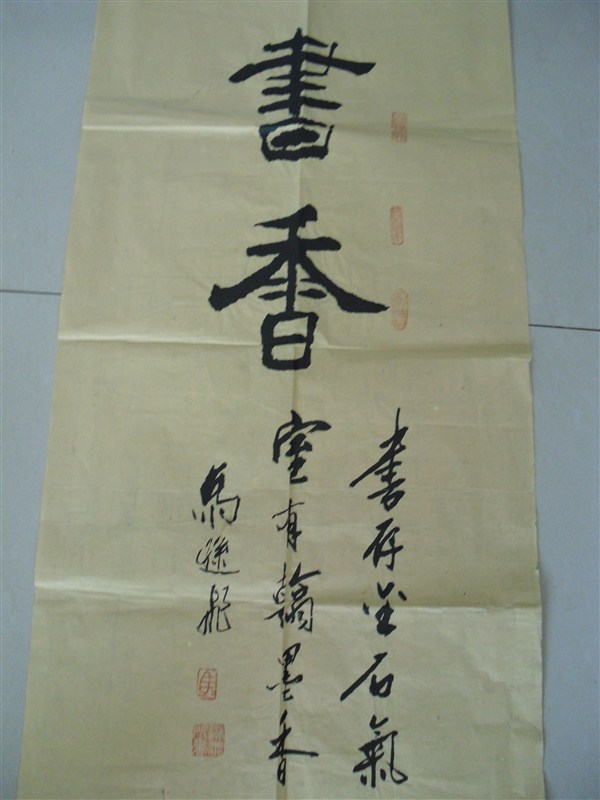 書香
書存金石氣
室有翰墨香
馬